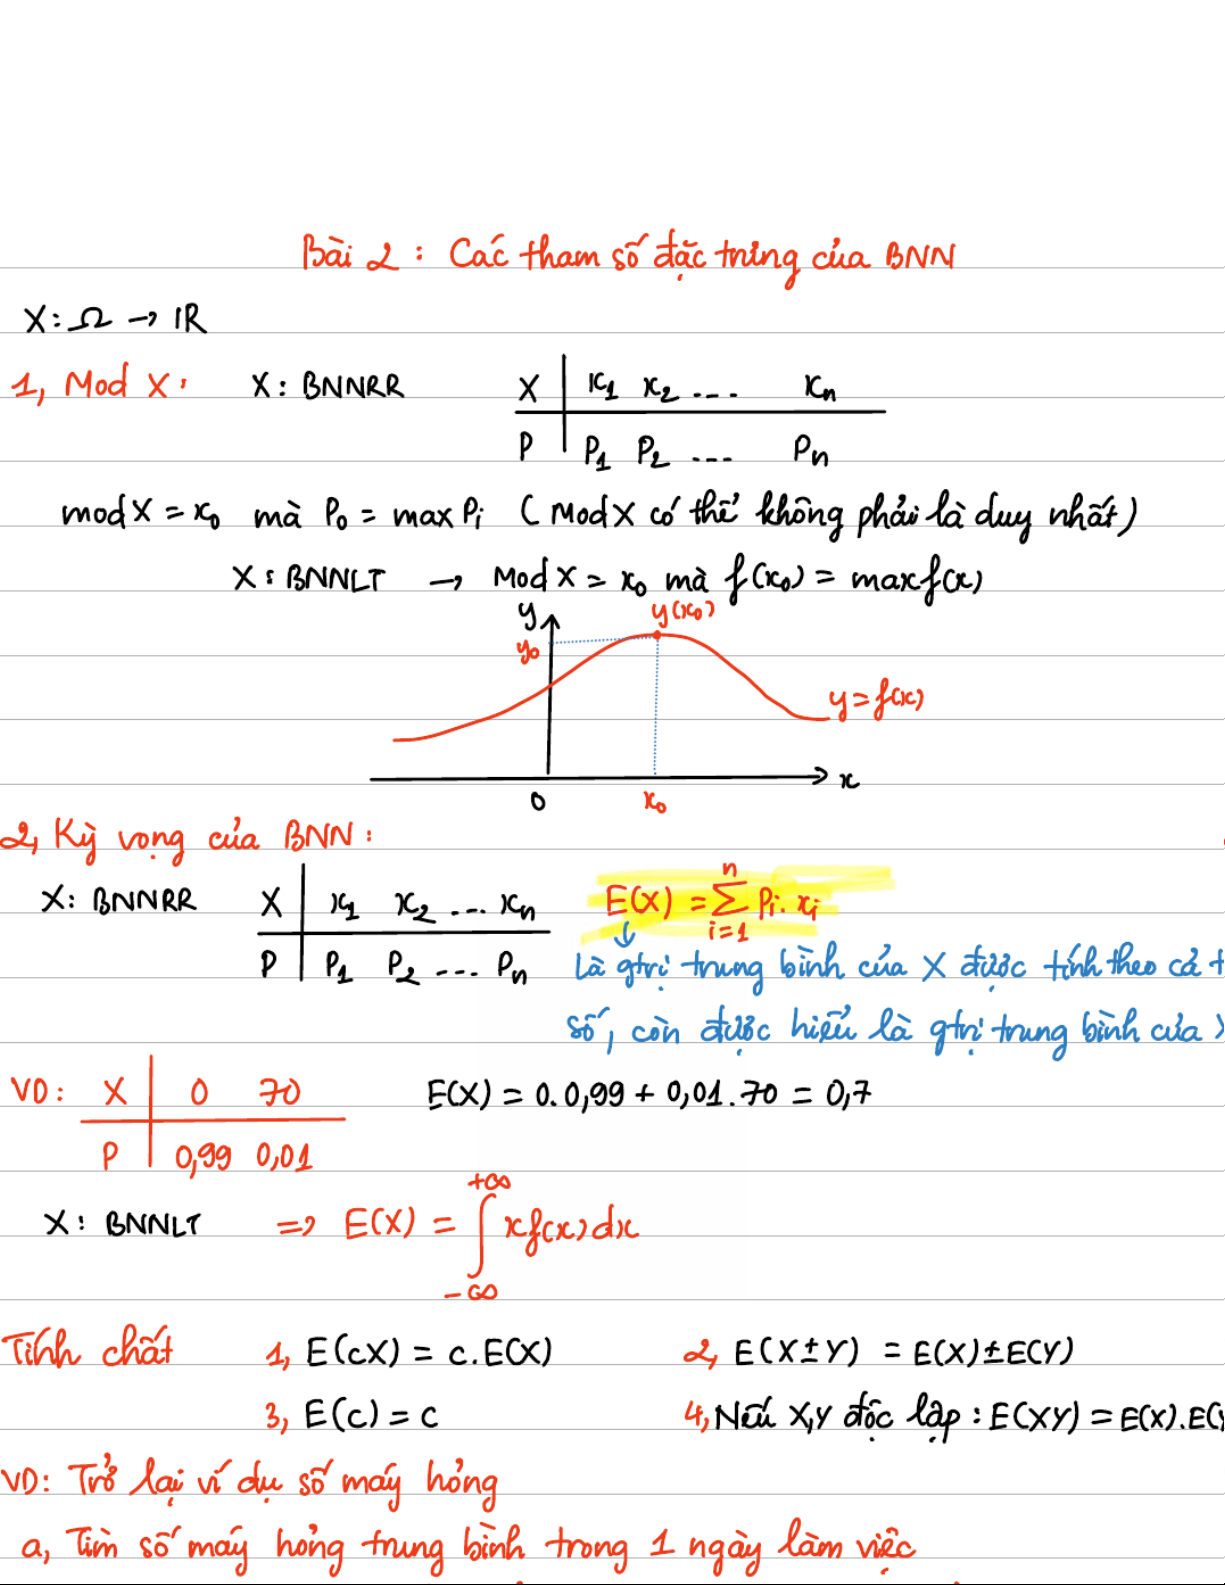 Bài 2 : Các tham số đặc trưng của BNN
X: Ω → IR
1, Mod X: X: BNNRR
X | x₁ x₂ .... xₙ
P | P₁ P₂ .... Pₙ
mod X = x₀ mà P₀ = max Pᵢ ( Mod X có thể không phải là duy nhất )
X : BNNLT → Mod X = x₀ mà f(x₀) = max f(x)
y y(x₀)
y₀
y = f(x)
x
0 x₀
2, Kỳ vọng của BNN :
X: BNNRR X | x₁ x₂ .... xₙ E(X) = ∑ⁿᵢ₌₁ Pᵢ. xᵢ
P | P₁ P₂ --- Pₙ Là gtrị trung bình của X được tính theo cả
số, còn được hiểu là gtrị trung bình của X
VD: X | 0 70 E(X) = 0. 0,99 + 0,01. 70 = 0,7
P | 0,99 0,01
X: BNNLT => E(X) = ∫₋∞⁺∞ x f(x) dx
Tính chất 1, E(cX) = c. E(X) 2, E(X±Y) = E(X)±E(Y)
3, E(c) = c 4, Nếu X,Y độc lập : E(XY) = E(X). E(Y
VD: Trở lại ví dụ số máy hỏng
a, Tìm số máy hỏng trung bình trong 1 ngày làm việc